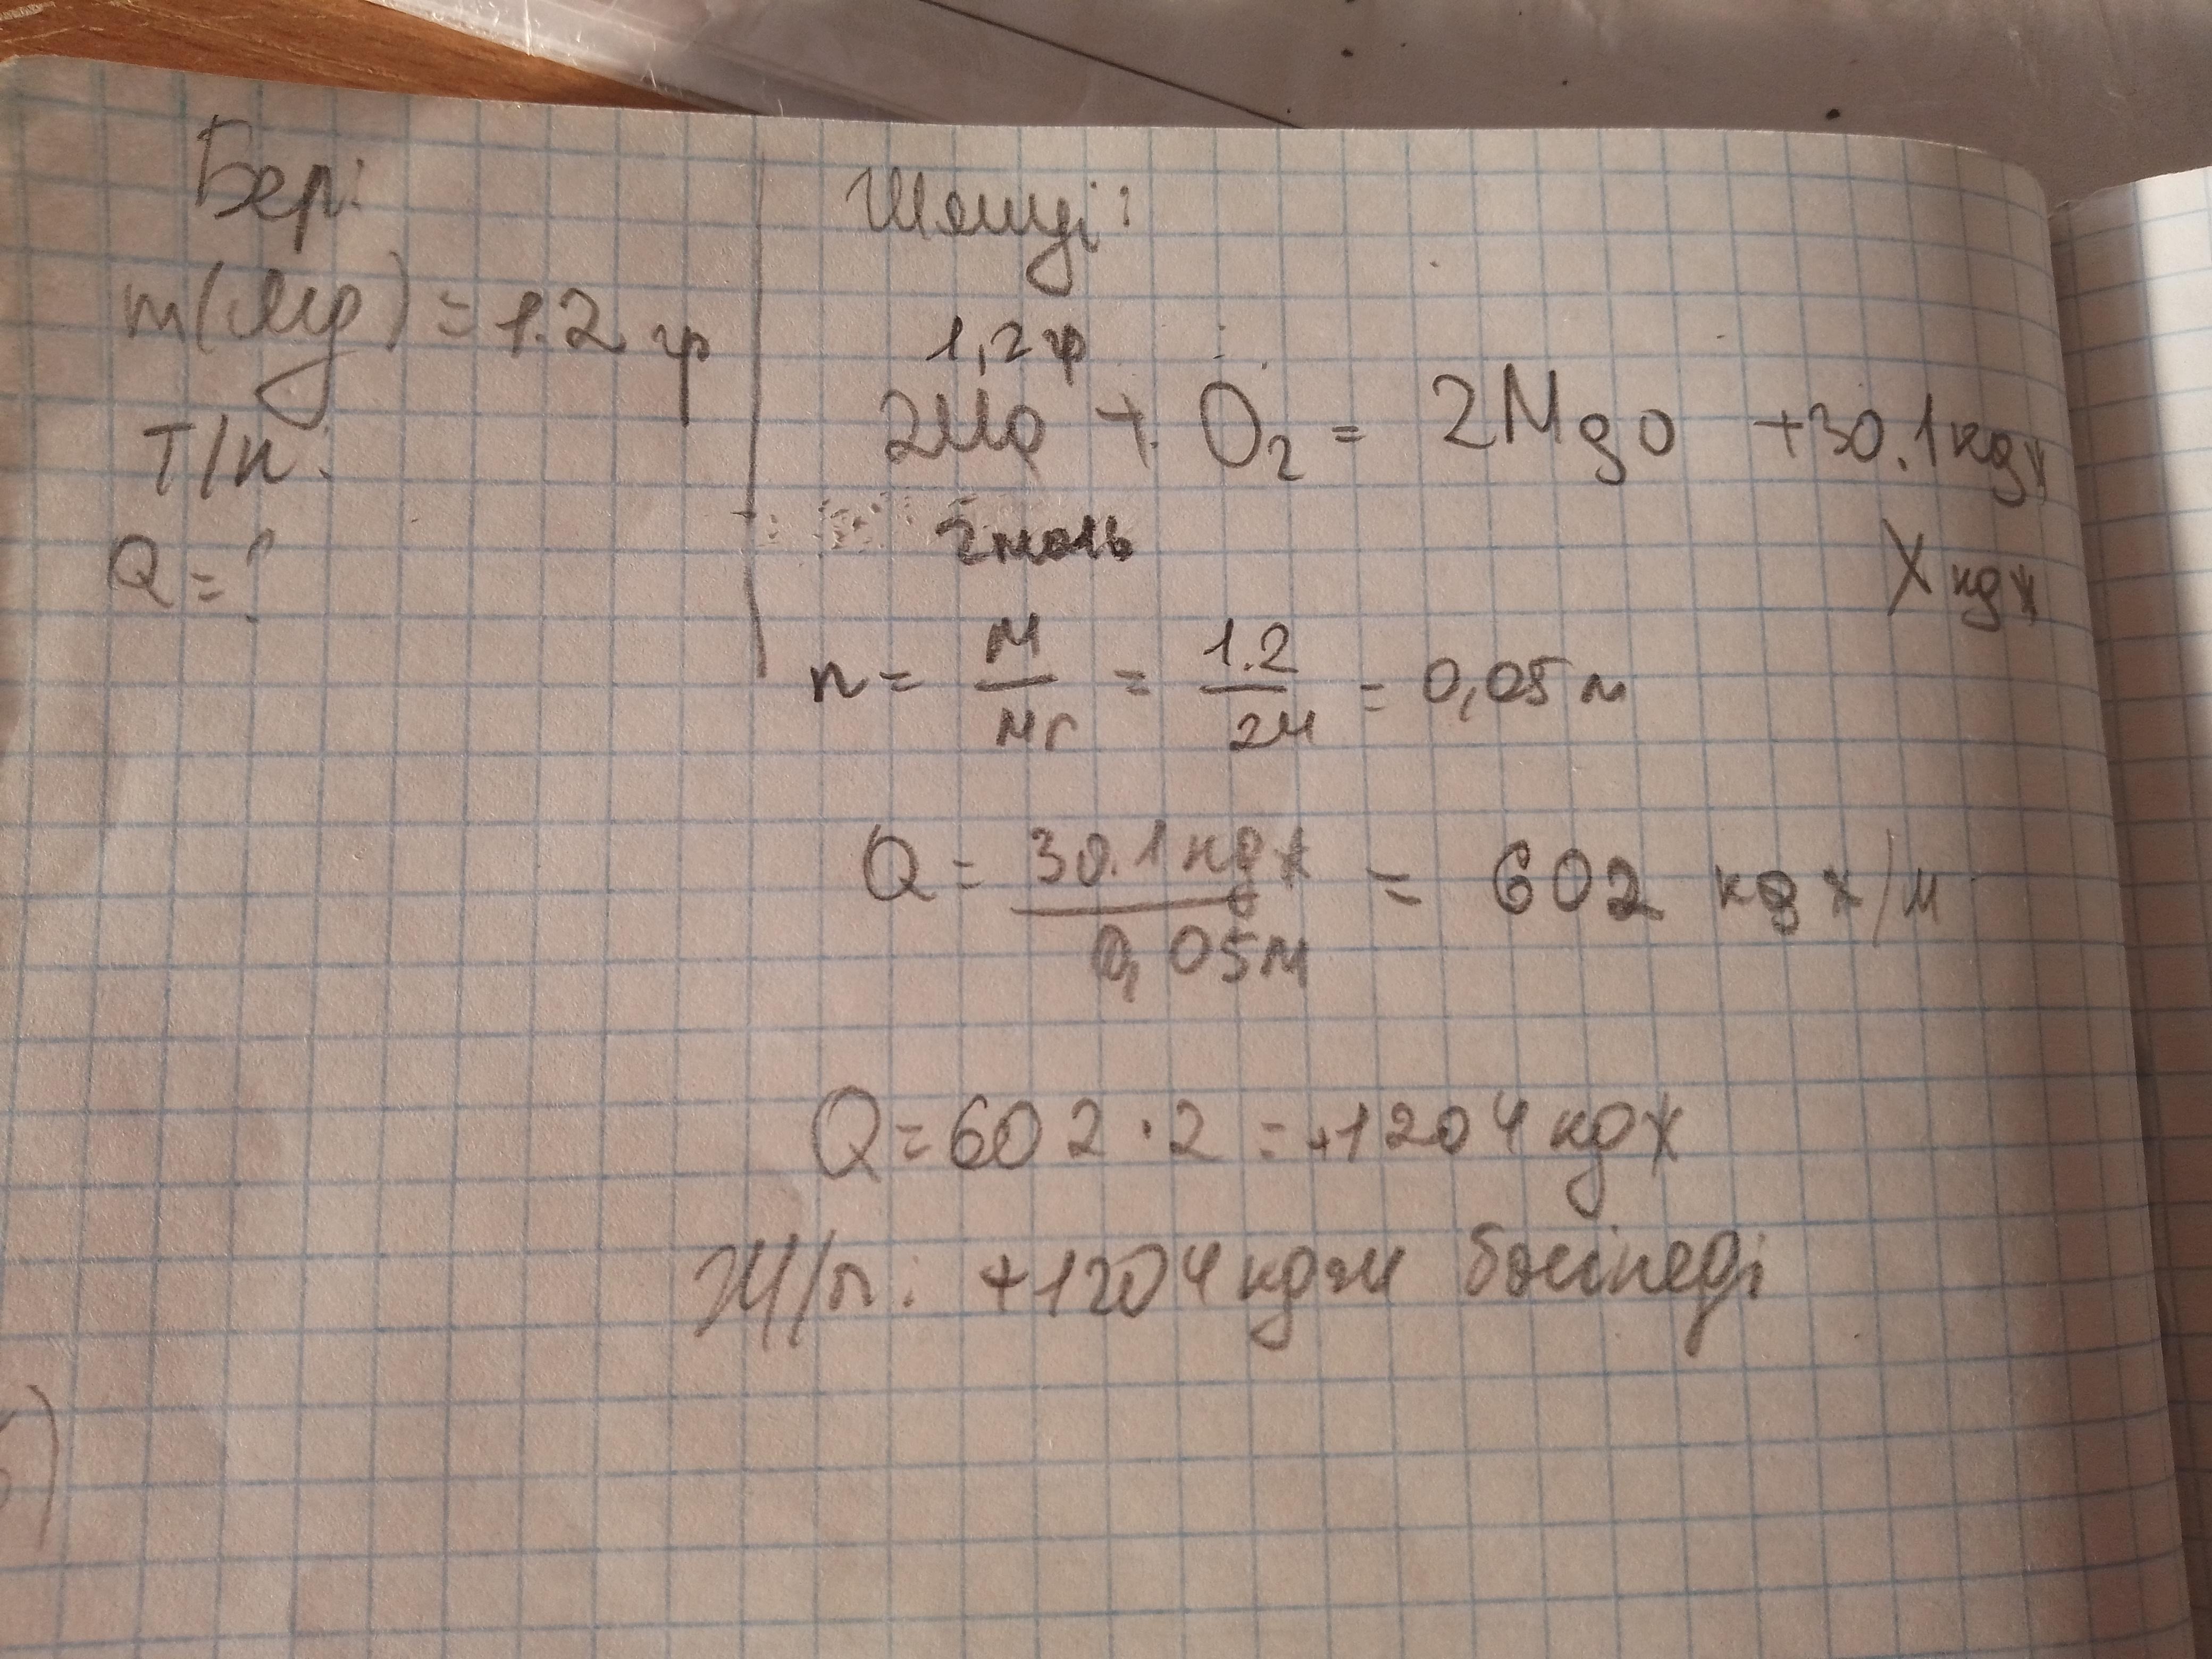 Бер:
m(Mg) = 1.2 гр
Т/к:
Q = ?
Шешуі:
1,2 гр
2Mg + O₂ = 2MgO +30.1 кдж
2моль
X кдж
n = м/Mr = 1.2/24 = 0,05 м
Q = 30.1 кдж/0,05м = 602 кдж/м
Q = 602 · 2 = +1204 кдж
Ж/п: +1204 кдж бөлінеді